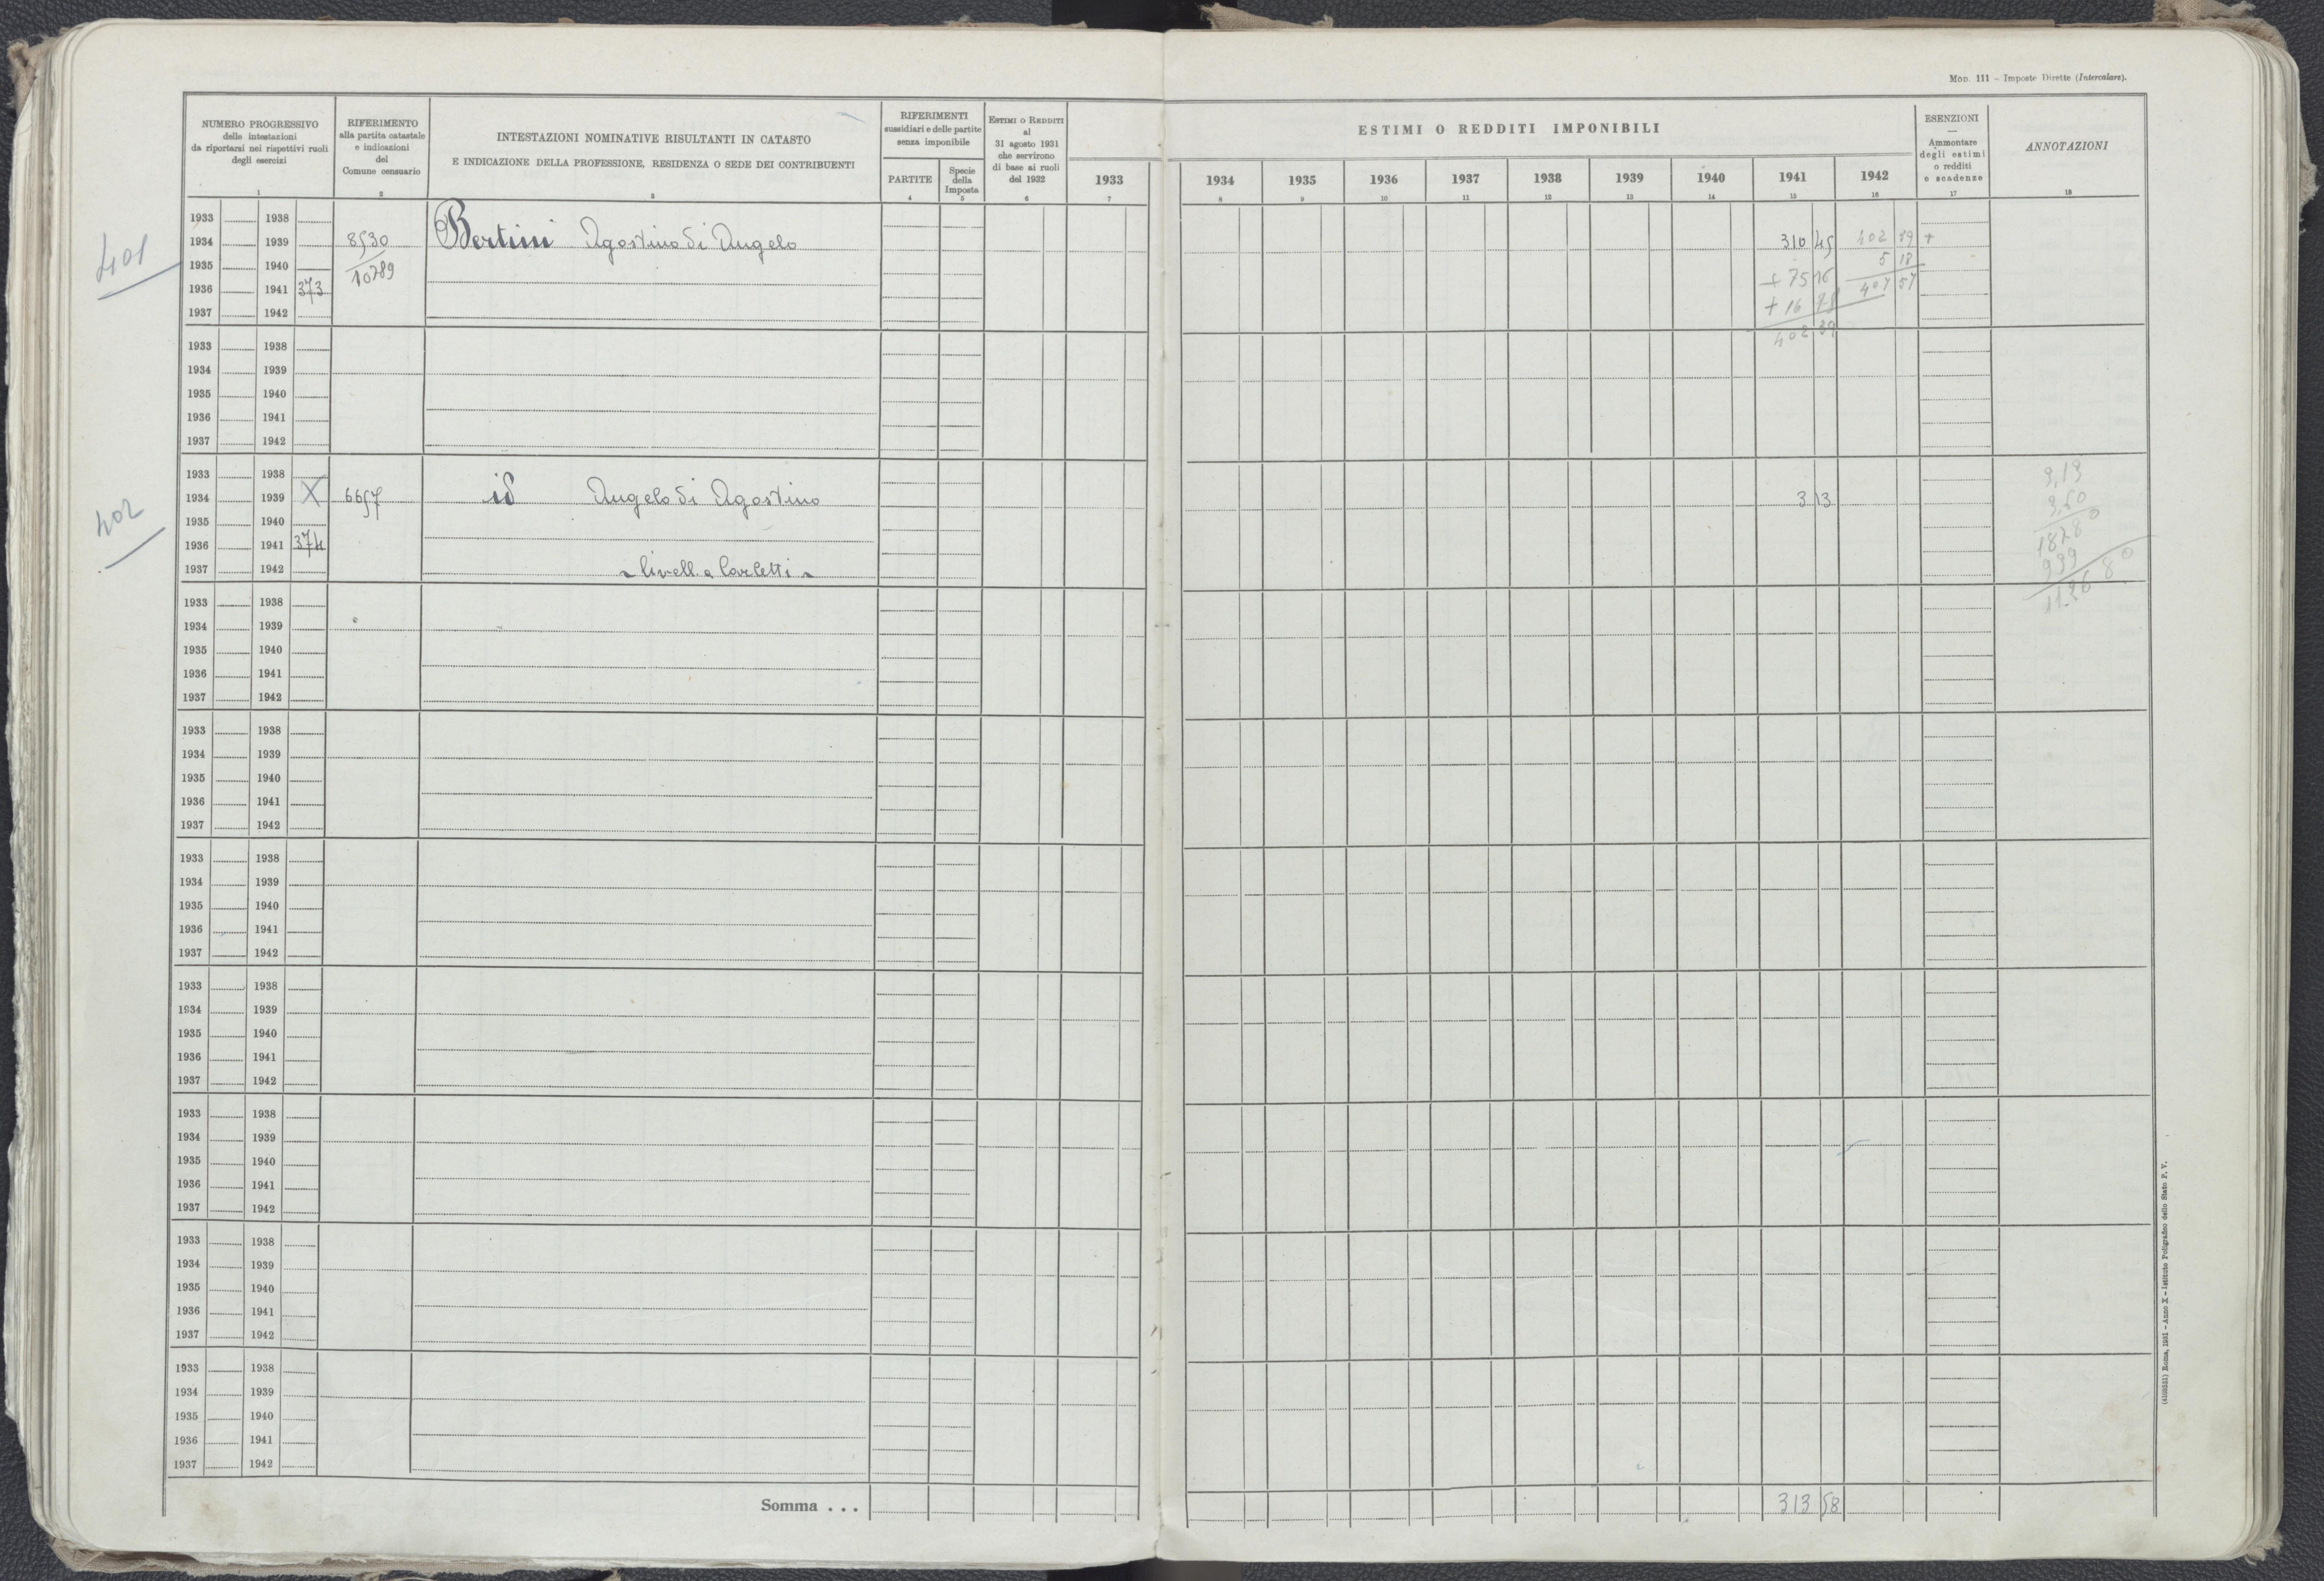 Mod. 111 – Imposte Dirette (Intercalare).
NUMERO PROGRESSIVO
delle intestazioni
da riportarsi nei rispettivi ruoli
degli esercizi
1
RIFERIMENTO
alla partita catastale
e indicazioni
del
Comune censuario
2
INTESTAZIONI NOMINATIVE RISULTANTI IN CATASTO
E INDICAZIONE DELLA PROFESSIONE, RESIDENZA O SEDE DEI CONTRIBUENTI
3
RIFERIMENTI
sussidiari e delle partite
senza imponibile
PARTITE
4
Specie
della
Imposta
5
ESTIMI O REDDITI
al
31 agosto 1931
che servirono
di base ai ruoli
del 1932
6
ESTIMI O REDDITI IMPONIBILI
1933 1934 1935 1936 1937 1938 1939 1940 1941 1942
7 8 9 10 11 12 13 14 15 16
ESENZIONI
—
Ammontare
degli estimi
o redditi
e scadenze
17
ANNOTAZIONI
18
401
1933 1938
1934 1939 8530 Bertini Agostino di Angelo 310 45 402 39 +
1935 1940 10789 5 18
1936 1941 373 + 75 16 407 57
1937 1942 + 16 78
402 39
1933 1938
1934 1939
1935 1940
1936 1941
1937 1942
402
1933 1938 9,19
1934 1939 X 6657 id Angelo di Agostino 3 13 9,60
1935 1940 18280
1936 1941 374 999
1937 1942 livell. a Carletti
1933 1938
1934 1939
1935 1940
1936 1941
1937 1942
1933 1938
1934 1939
1935 1940
1936 1941
1937 1942
1933 1938
1934 1939
1935 1940
1936 1941
1937 1942
1933 1938
1934 1939
1935 1940
1936 1941
1937 1942
1933 1938
1934 1939
1935 1940
1936 1941
1937 1942
1933 1938
1934 1939
1935 1940
1936 1941
1937 1942
1933 1938
1934 1939
1935 1940
1936 1941
1937 1942
Somma . . . 313 58
(4103531) Roma, 1931 – Anno X – Istituto Poligrafico dello Stato P. V.